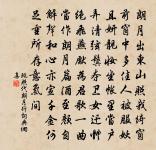 朗月出東山照我綺窗
前窗中多佳人被服妖
且妍靚妝坐帷裏當戶
弄清弦鬢奪衛女迅體
絕飛燕先為君歌一曲
當作朗月篇酒至顏自
解聲和心亦宣千金何
足重所存意氣間
鮑照代朗月行詞典網
集